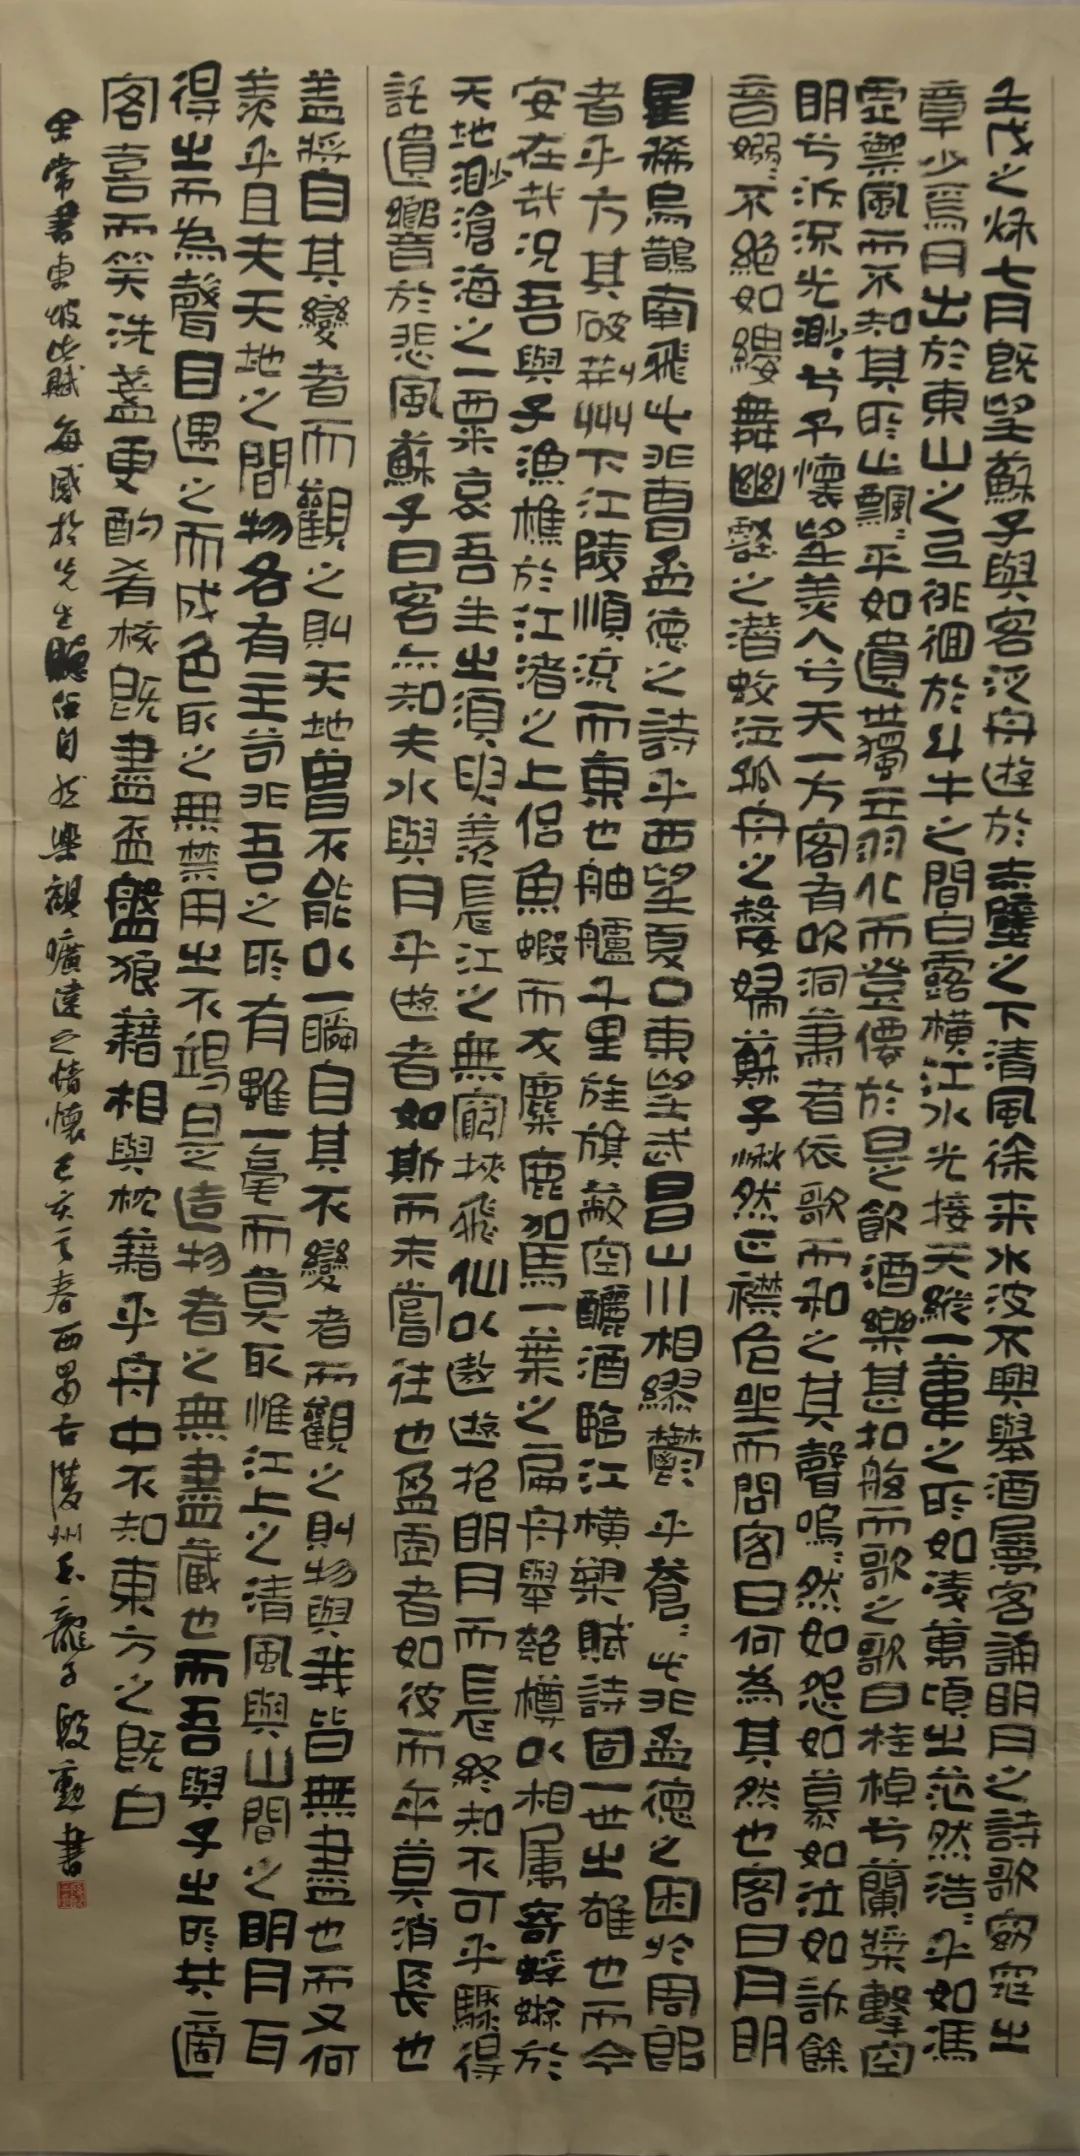 壬戌之秋七月既望蘇子與客泛舟遊於赤壁之下清風徐來水波不興舉酒屬客誦明月之詩歌窈窕之
章少焉月出於東山之上徘徊於斗牛之間白露橫江水光接天縱一葦之所如凌萬頃之茫然浩〻乎如馮
虛御風而不知其所止飄〻乎如遺世獨立羽化而登僊於是飲酒樂甚扣舷而歌之歌曰桂棹兮蘭槳擊空
明兮泝流光渺〻兮予懷望美人兮天一方客有吹洞簫者依歌而和之其聲嗚〻然如怨如慕如泣如訴餘
音嫋〻不絕如縷舞幽壑之潛蛟泣孤舟之嫠婦蘇子愀然正襟危坐而問客曰何為其然也客曰月明
星稀烏鵲南飛此非曹孟德之詩乎西望夏口東望武昌山川相繆鬱乎蒼〻此非孟德之困於周郎
者乎方其破荊州下江陵順流而東也舳艫千里旌旗蔽空釃酒臨江橫槊賦詩固一世之雄也而今
安在哉況吾與子漁樵於江渚之上侶魚蝦而友麋鹿駕一葉之扁舟舉匏樽以相屬寄蜉蝣於
天地渺滄海之一粟哀吾生之須臾羨長江之無窮挾飛仙以遨遊抱明月而長終知不可乎驟得
託遺響於悲風蘇子曰客亦知夫水與月乎逝者如斯而未嘗往也盈虛者如彼而卒莫消長也
蓋將自其變者而觀之則天地曾不能以一瞬自其不變者而觀之則物與我皆無盡也而又何
羨乎且夫天地之間物各有主苟非吾之所有雖一毫而莫取惟江上之清風與山間之明月耳
得之而為聲目遇之而成色取之無禁用之不竭是造物者之無盡藏也而吾與子之所共適
客喜而笑洗盞更酌肴核既盡杯盤狼藉相與枕藉乎舟中不知東方之既白
余常書東坡此賦每感於先生聽任自然樂觀曠達之情懷己亥之春西蜀古陵州玉龍子殷勳書